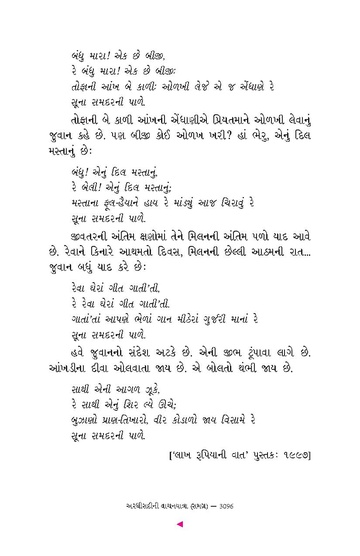 બંધુ મારા! એક છે બીજી,
રે બંધુ મારા! એક છે બીજી:
તોફાની આંખ બે કાળી: ઓળખી લેજે એ જ એંધાણે રે
સૂના સમદરની પાળે.
તોફાની બે કાળી આંખની એંધાણીએ પ્રિયતમાને ઓળખી લેવાનું
જુવાન કહે છે. પણ બીજી કોઈ ઓળખ ખરી? હાં ભેરુ, એનું દિલ
મસ્તાનું છે:
બંધુ! એનું દિલ મસ્તાનું,
રે બેલી! એનું દિલ મસ્તાનું;
મસ્તાના ફૂલ-હૈયાને હાય રે માંડ્યું આજ ચિરાવું રે
સૂના સમદરની પાળે.
જીવતરની અંતિમ ક્ષણોમાં તેને મિલનની અંતિમ પળો યાદ આવે
છે. રેવાને કિનારે આથમતો દિવસ, મિલનની છેલ્લી આઠમની રાત...
જુવાન બધું યાદ કરે છે:
રેવા ઘેરાં ગીત ગાતી'તી,
રે રેવા ઘેરાં ગીત ગાતી'તી.
ગાતાં'તાં આપણે ભેળાં ગાન મીઠેરાં ગુર્જરી માનાં રે
સૂના સમદરની પાળે.
હવે જુવાનનો સંદેશ અટકે છે. એની જીભ ટૂંપાવા લાગે છે.
આંખડીના દીવા ઓલવાતા જાય છે. એ બોલતો થંભી જાય છે.
સાથી એની આગળ ઝૂકે,
રે સાથી એનું શિર લ્યે ઊંચે;
બુઝાણો પ્રાણ-તિખારો, વીર કોડાળો જાય વિસામે રે
સૂના સમદરની પાળે.
['લાખ રૂપિયાની વાત' પુસ્તક: ૧૯૯૭]
અરધી સદીની વાચનયાત્રા (સમગ્ર) — 3096